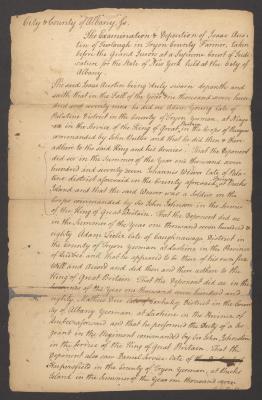 City & County of Albany, ss.
The Examination & Deposition of Isaac Aus-
tin of Swolough in Tryon County Farmer, taken
before the Grand Jurors at a Supreme Court of Judi-
cature for the State of New York held at the City of
Albany.
The said Isaac Austin being duly sworn deposeth and
saith that in the Fall of the Year one thousand seven hundred
and seventy nine he did see Adam Young late of
Palatine District in the County of Tryon Yeoman, at Niaga-
ra in the Service of the King of Great Britain, in the Corps of Rangers
commanded by John Butler and that he did then & there
adhere to the said King and his Service. That the Deponent
did see in the Summer of the Year one thousand seven
hundred and seventy seven Johannis late of Pala-
tine district aforesaid in the County aforesaid, at Bucks
Island and that the said was a Soldier in the
Corps commanded by Sir John Johnson in the Service
of the King of Great Britain. That the Deponent did see
in the Summer of the Year one thousand seven hundred &
eighty Adam late of District in
the County of Tryon Yeoman at Lachine in the Province
of Quebec and that he appeared to be there of his own free
Will and Accord and did then and there adhere to the
King of Great Britain. That the Deponent did see in the
of the Year one thousand seven hundred and
eighty, Mathew late of District in the Coun-
ty of Albany Yeoman at Lachine in the Province of
Quebec aforesaid and that he performed the Duty of a Ser-
geant in the Regiment commanded by Sir John Johnston
in the Service of the King of Great Britain. That the
Deponent also saw Daniel Service late of
in the County of Tryon Yeoman, at Bucks
Island in the Summer of the Year one thousand seven